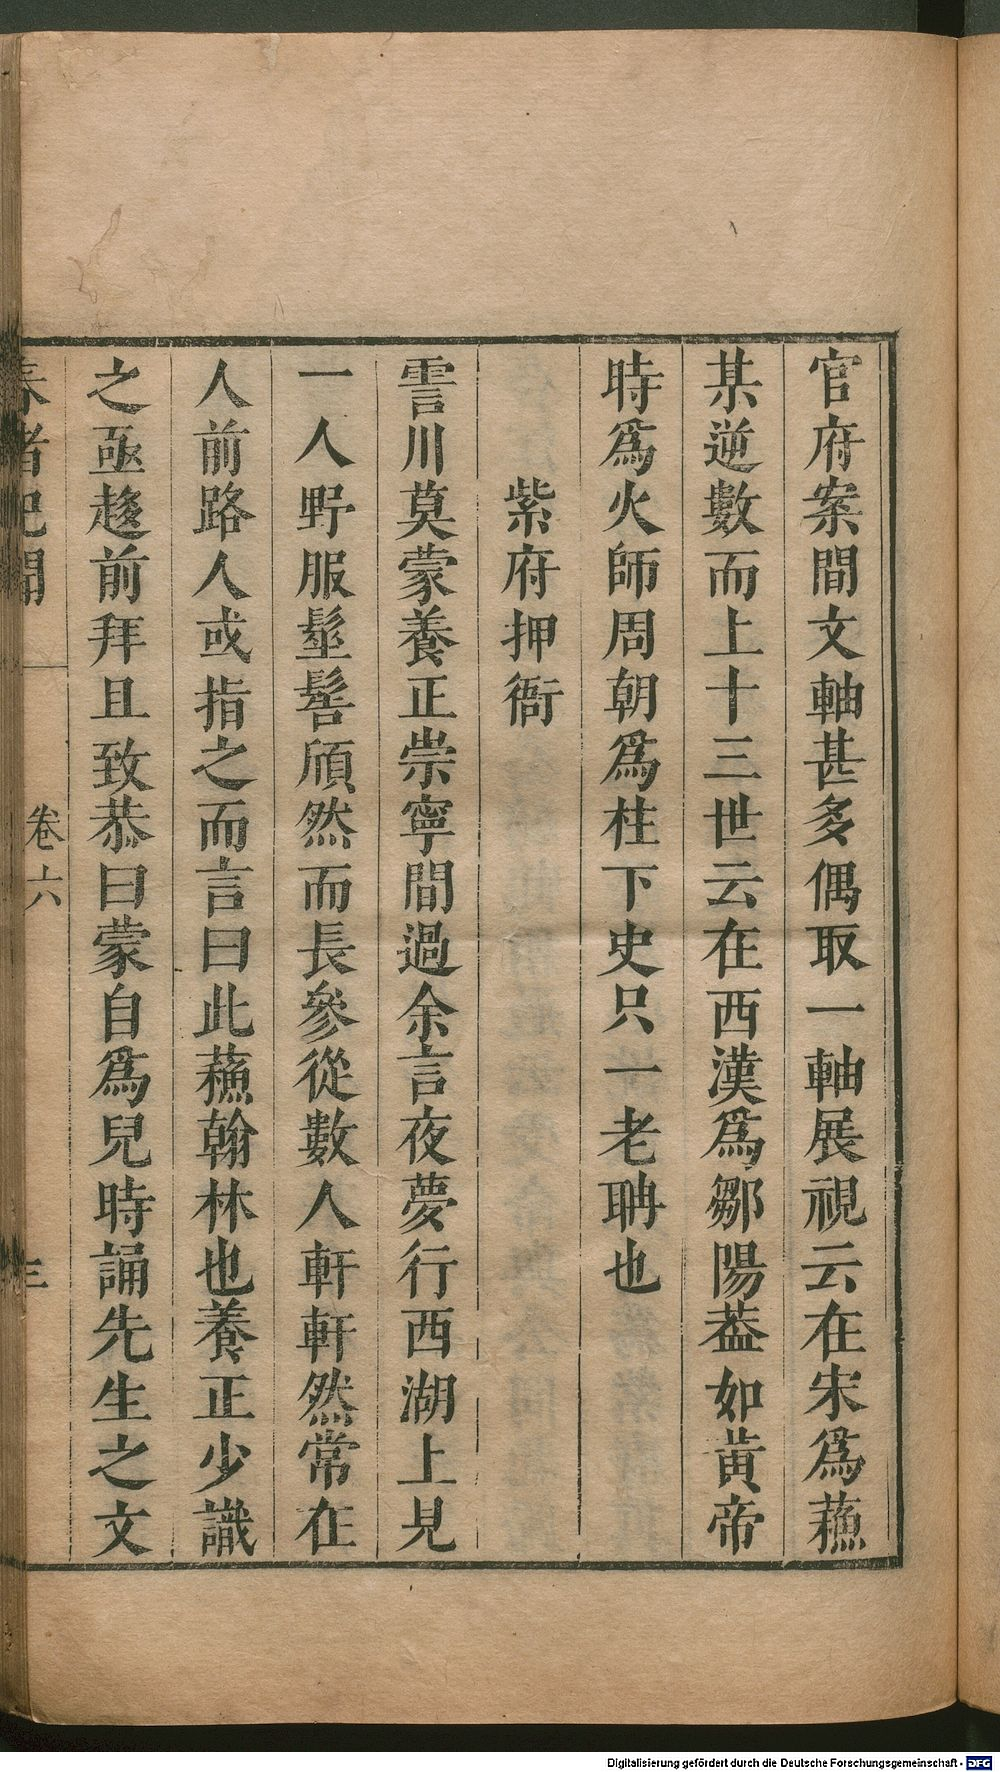 官府案間文軸甚多偶取一軸展視云在宋爲蘓
某逆數而上十三世云在西漢爲鄒陽葢如黄帝
時爲火師周朝爲柱下史只一老聃也
紫府押衙
霅川莫蒙養正崇寧間過余言夜夢行西湖上見
一人野服髽髻頎然而長參從數人軒軒然常在
人前路人或指之而言曰此蘓翰林也養正少識
之亟趨前拜且致恭曰蒙自爲兒時誦先生之文
春渚紀聞
卷六
三
Digitalisierung gefördert durch die Deutsche Forschungsgemeinschaft - DFG